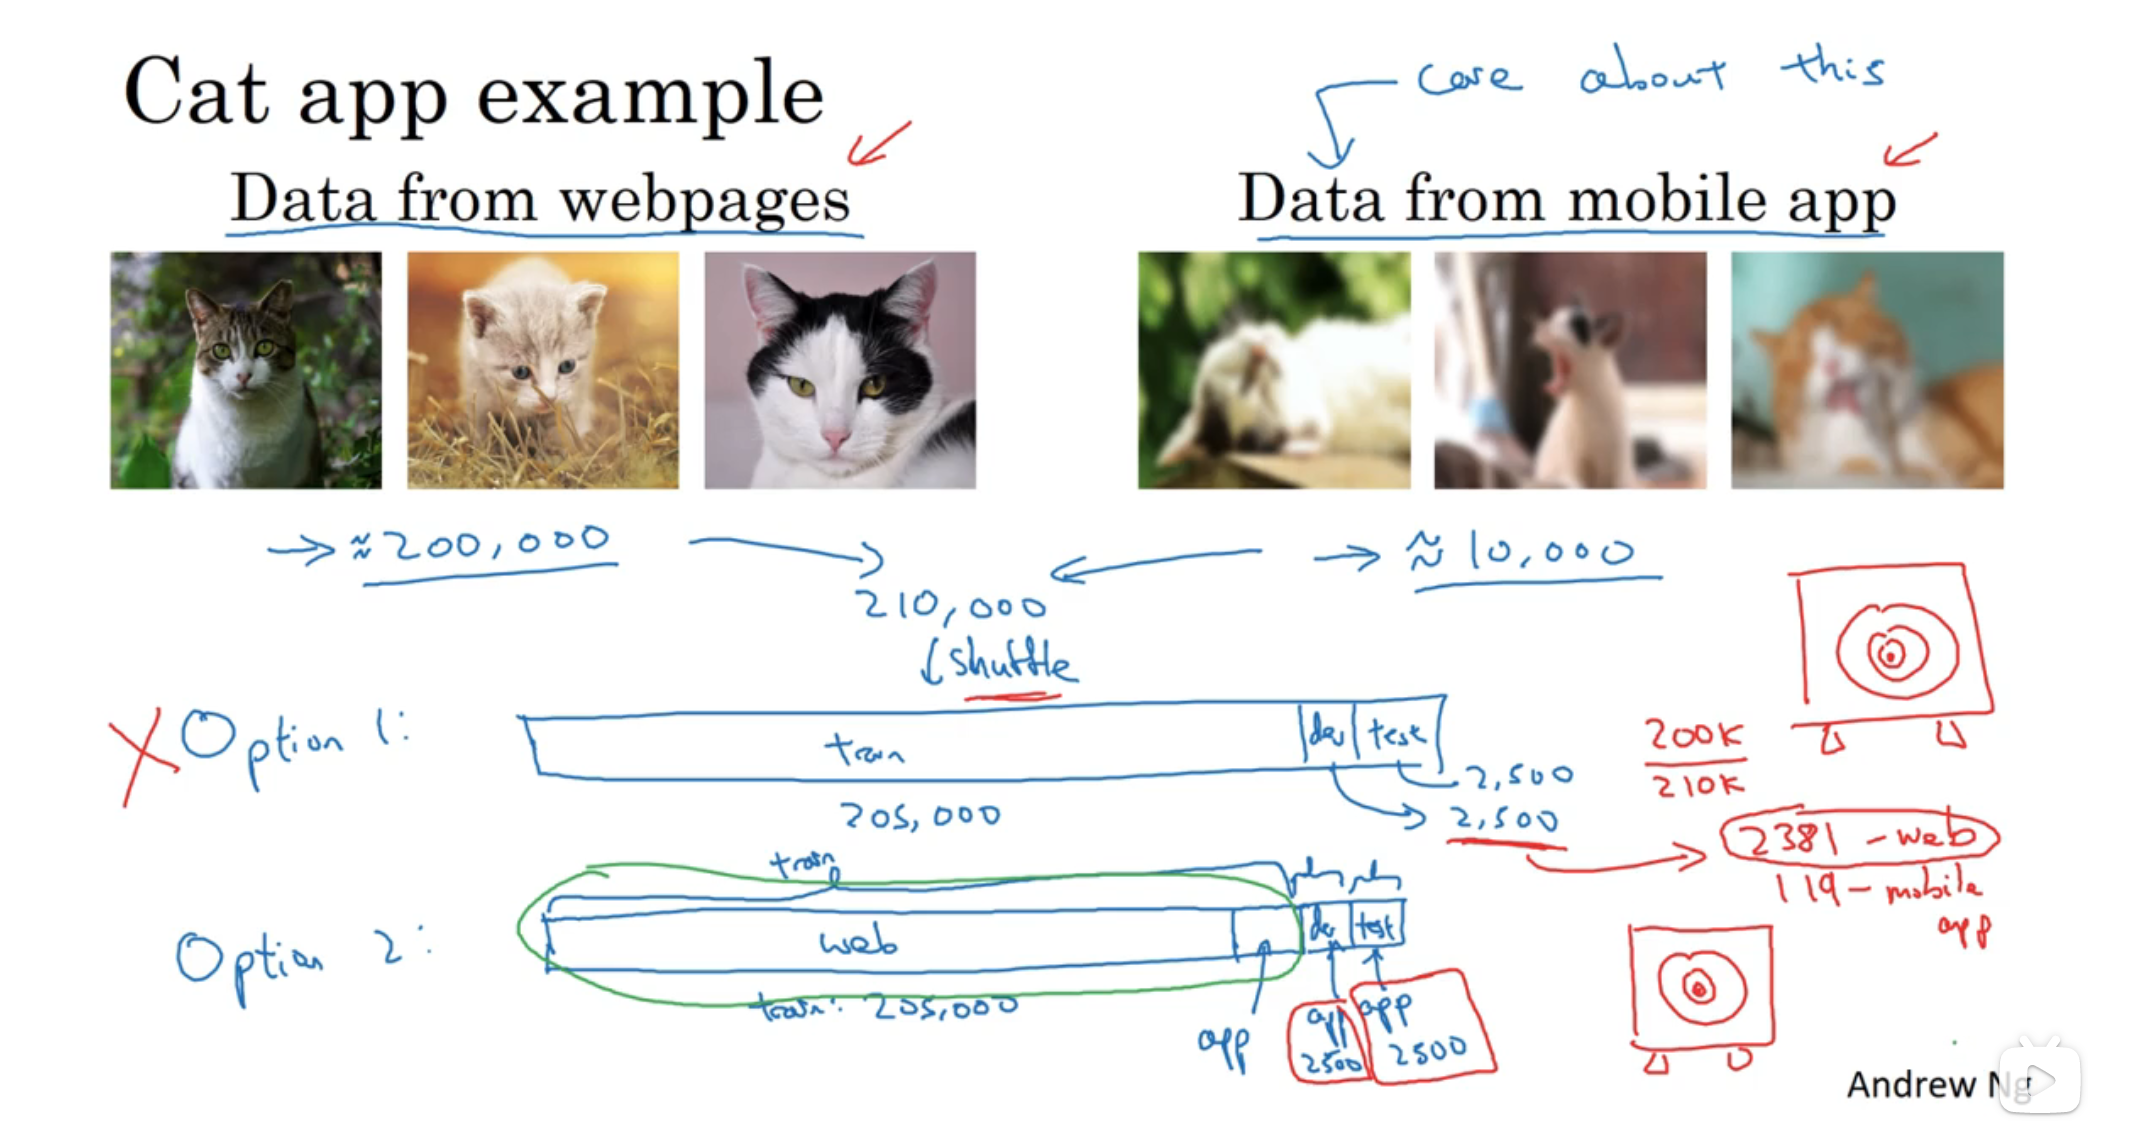 Cat app example
care about this
Data from webpages
Data from mobile app
≈ 200,000
≈ 10,000
210,000
shuffle
Option 1:
train
dev
test
205,000
2,500
2,500
200K
210K
2381 - web
119 - mobile
app
train
Option 2:
web
dev
test
train: 205,000
app
app
2500
app
2500
Andrew Ng